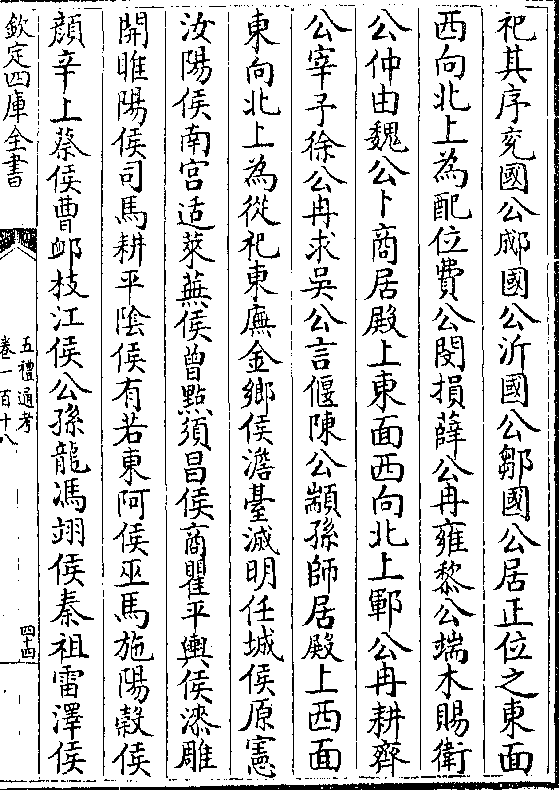 祀其序兗國公郕國公沂國公鄒國公居正位之東面
西向北上為配位費公閔損薛公冉雍黎公端木賜衛
公仲由魏公卜商居殿上東面西向北上鄆公冉耕齊
公宰予徐公冉求吳公言偃陳公顓孫師居殿上西面
東向北上為從祀東廡金鄉侯澹臺滅明任城侯原憲
汝陽侯南宮适萊蕪侯曾點須昌侯商瞿平輿侯漆雕
開睢陽侯司馬耕平陰侯有若東阿侯巫馬施陽穀侯
顏辛上蔡侯曹䘏枝江侯公孫龍馮翊侯秦祖雷澤侯
欽定四庫全書
五禮通考
卷一百十八
四十四